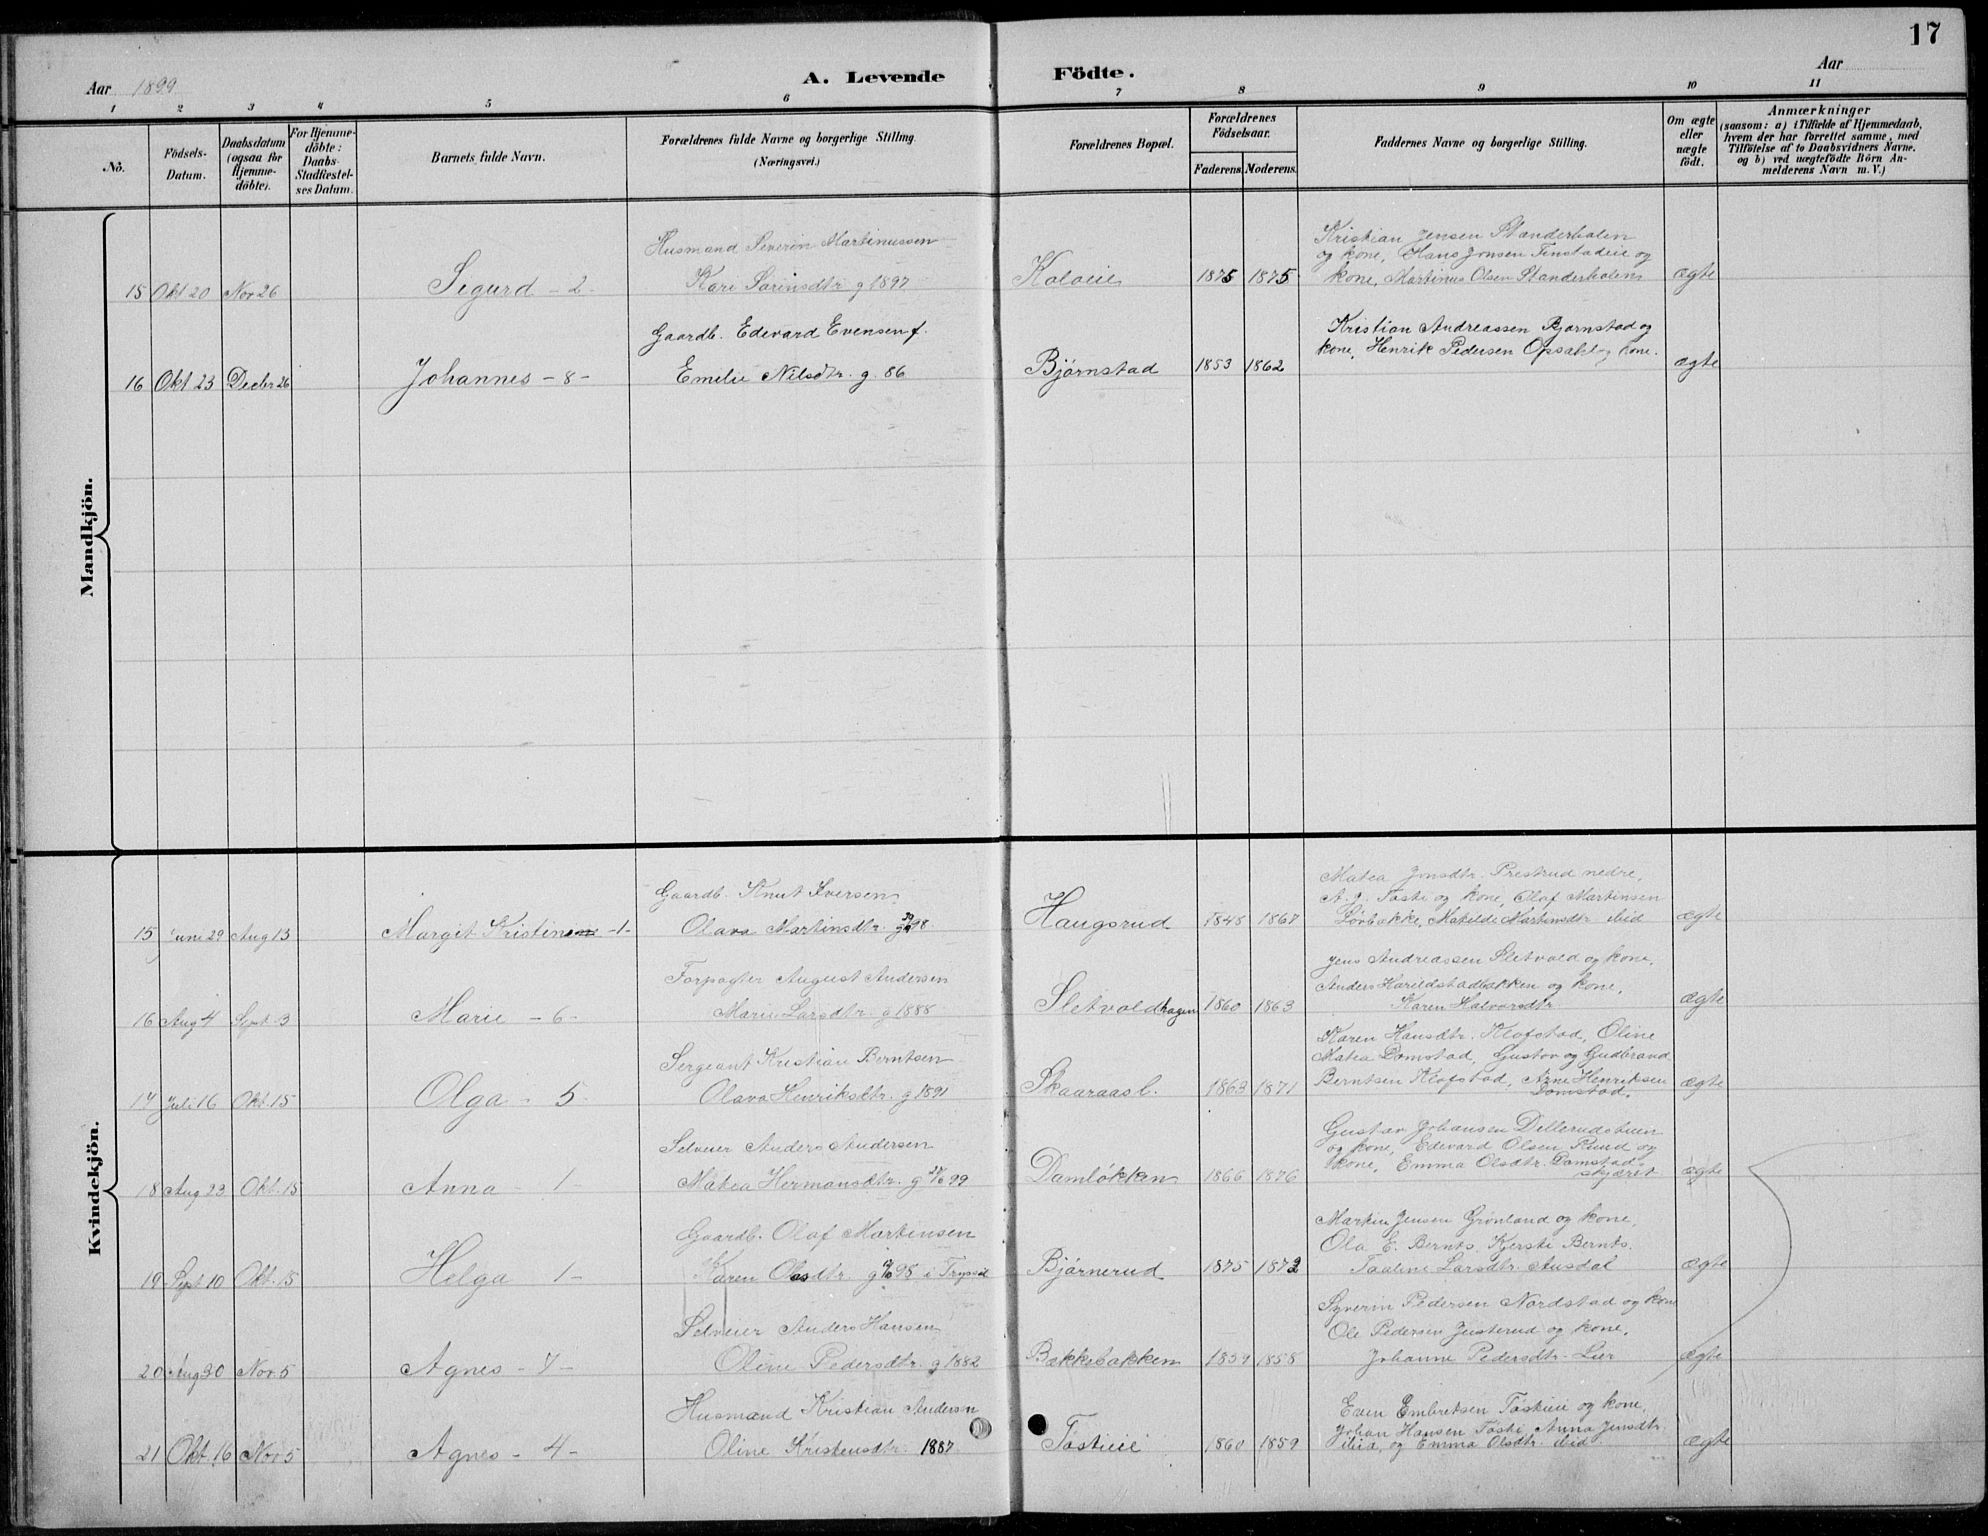 17
Aar 1899
A. Levende Födte.
Aar
1 2 3 4 5 6 7 8 9 10 11
No.
Födsels-Datum.
Daabsdatum (ogsaa for Hjemme-döbte).
For Hjemme-döbte: Daabs-Stadfæstel-ses Datum.
Barnets fulde Navn.
Forældrenes fulde Navne og borgerlige Stilling. (Næringsvei.)
Forældrenes Bopæl.
Forældrenes Födselsaar.
Faderens Moderens.
Faddernes Navne og borgerlige Stilling.
Om ægte eller uægte födt.
Anmærkninger
(saasom: a) i Tilfælde af Hjemmedaab, hvem der har forrettet samme, med Tilföielse af to Daabsvidners Navne. og b) ved uægtefödte Börn Anmelderens Navn m. V.)
Mandkjön.
Husmand Severin Martinussen
Kristian Jensen Stenderhalen
og kone, Hans Jonsen Finstadeie og
15 Okt 20 Nov 26 Sigurd - 2 - Kari Sørinsdtr g 1897 Koloeie 1875 1875 kone, Martinus Olsen Stenderhalen ægte
Gaardb. Edevard Evensen f.
Kristian Andreassen Bjørnstad og
16 Okt 23 Decbr 26 Johannes - 8 - Emelie Nilsdtr. g. 86 Bjørnstad 1853 1862 kone, Henrik Pedersen Opsahl og kone. ægte
Kvindekjön.
Gaardb. Knut Iversen
Matea Jonsdtr. Prestrud nedre,
A. J. Toste og kone, Olaf Martinsen
15 June 29 Aug 13 Margit Kristine - 1 - Olava Martinsdtr. g 98 Haugsrud 1848 1867 Løvbakke, Matilde Martinsdtr. ibid ægte
Forpagter August Andersen
Jens Andreassen Sletvold og kone,
Anders Harildstadbakken og kone,
16 Aug 4 Sept 3 Marie - 6 - Marie Larsdtr. g 1888 Sletvoldhagen 1860 1863 Karen Halvorsdtr. ægte
Sergeant Kristian Berntsen
Karen Hansdtr. Klofstad, Oline
Matea Domstad, Gustav og Gudbrand
17 Juli 16 Okt. 15 Olga - 5 - Olava Henriksdtr. g 1891 Skaaraasl. 1863 1871 Berntsen Klofstad, Arne Henriksen Domstad. ægte
Selveier Anders Andersen
Gustav Johansen Dellerudstuen
og kone, Edevard Olsen Rund og
18 Aug 23 Okt. 15 Anna 1 - Matea Hermansdtr. g 99 Damløkken 1866 1876 kone, Emma Olsdtr. Domstad skjæret ægte
Gaardb. Olaf Martinsen
Martin Jensen Grønland og kone,
Ola E. Bernts. Kjersti Bernts.
19 Sept 10 Okt. 15 Helga 1 - Karen Olsdtr. g 98 i Trysil Bjørnerud 1875 1872 Taaline Larsdtr. Ausdal ægte
Selveier Anders Hansen
Syverin Pedersen Nordstad og kone
Ole Pedersen Justerud og kone,
20 Aug 30 Nov. 5 Agnes - 7 - Oline Pedersdtr. g 1882 Bakkebakken 1859 1858 Johanne Pedersdtr. Lier ægte
Husmand Kristian Andersen
Even Embretsen Tosteie og kone,
Johan Hansen Toste, Anna Jensdtr.
21 Okt. 16 Nov 5 Agnes - 4 - Oline Kristensdtr. 1887 Tosteie 1860 1859 ibid, og Emma Olsdtr. ibid ægte